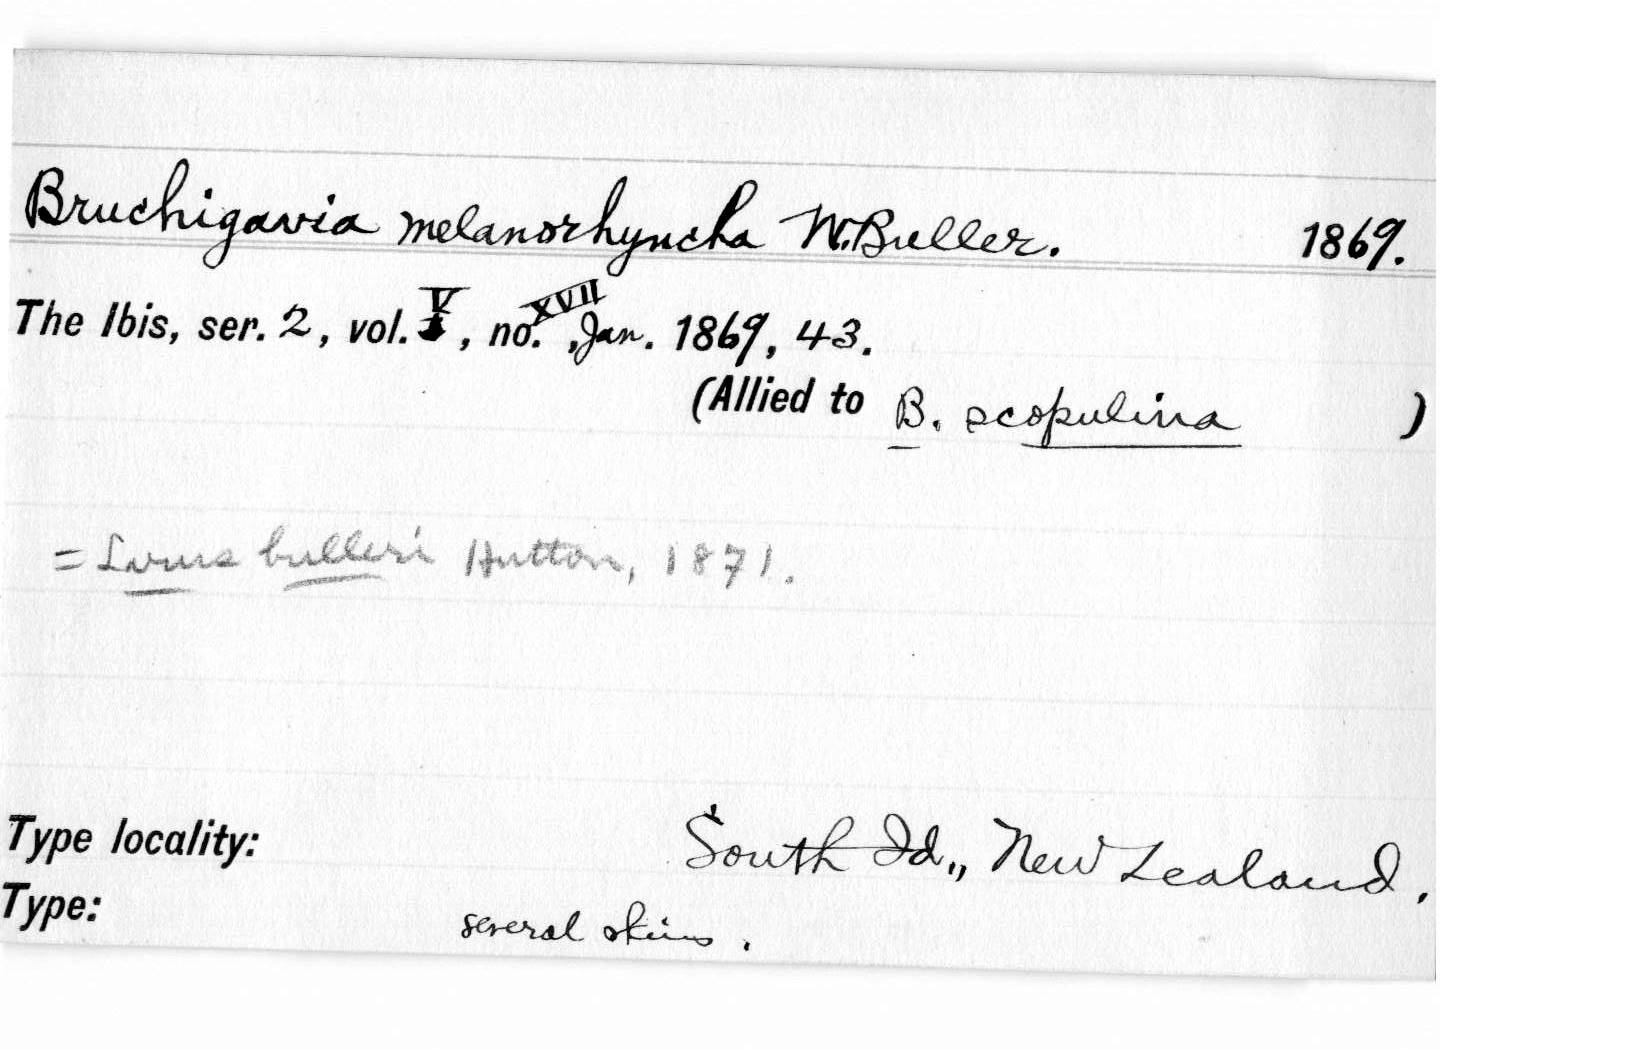 Bruchigavia melanorhyncha W.Buller. 1869.
The Ibis, ser. 2, vol. V, no. XVII, Jan. 1869, 43.
(Allied to B. scopulina )
= Larus bulleri Hutton, 1871.
Type locality: South Id., New Zealand.
Type: several skins.